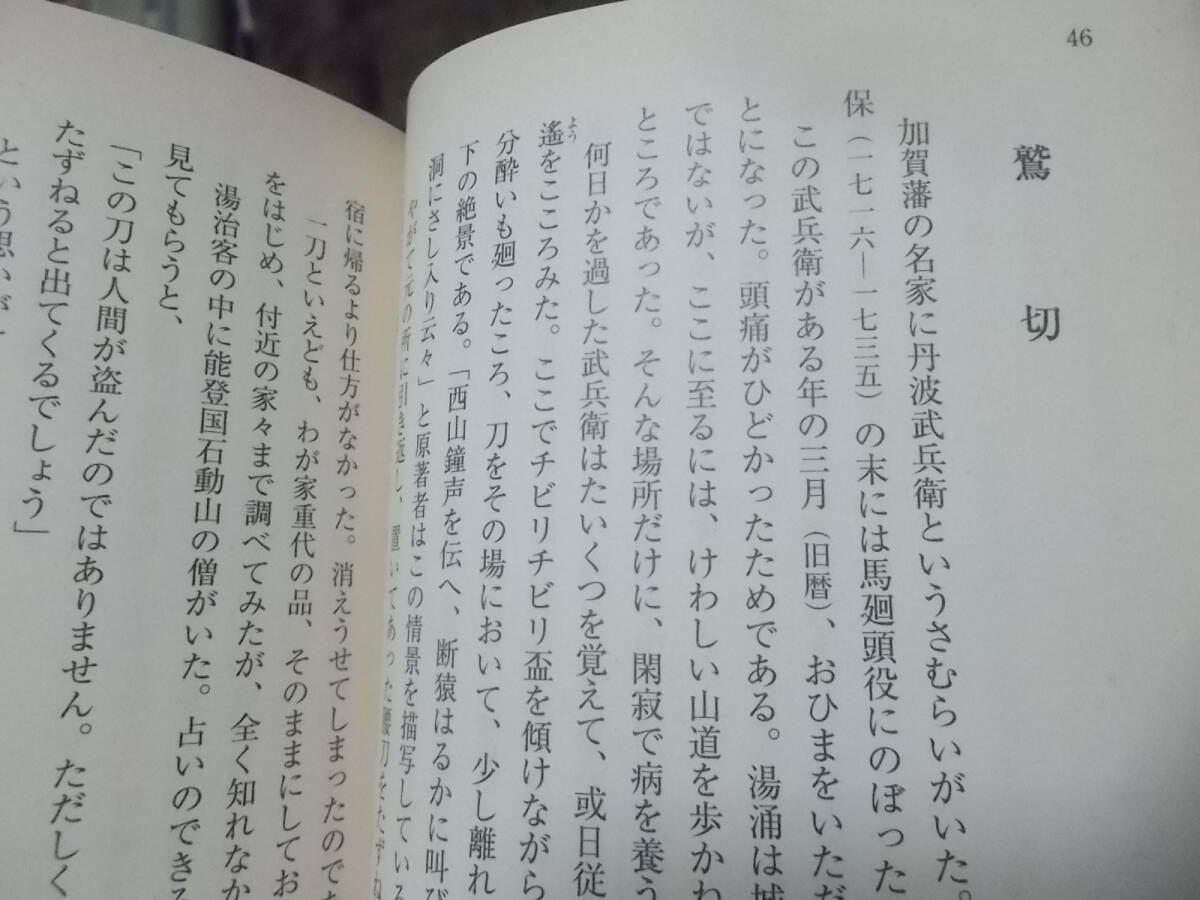 46
鷲切
加賀藩の名家に丹波武兵衛というさむらいがいた。
保(一七一六―一七三五)の末には馬廻頭役にのぼった
この武兵衛がある年の三月(旧暦)、おひまをいただ
とになった。頭痛がひどかったためである。湯涌は城
ではないが、ここに至るには、けわしい山道を歩かね
ところであった。そんな場所だけに、閑寂で病を養う
何日かを過した武兵衛はたいくつを覚えて、或日従
遙をこころみた。ここでチビリチビリ盃を傾けながら
よう
分酔いも廻ったころ、刀をその場において、少し離れ
下の絶景である。「西山鐘声を伝へ、断猿はるかに叫び
洞にさし入り云々」と原著者はこの情景を描写している
やがて元の所に引き返し、置いてあった腰刀をたずね
宿に帰るより仕方がなかった。消えうせてしまったので
一刀といえども、わが家重代の品、そのままにしてお
をはじめ、付近の家々まで調べてみたが、全く知れなか
湯治客の中に能登国石動山の僧がいた。占いのできる
見てもらうと、
「この刀は人間が盗んだのではありません。ただしく
たずねると出てくるでしょう」
という思いが